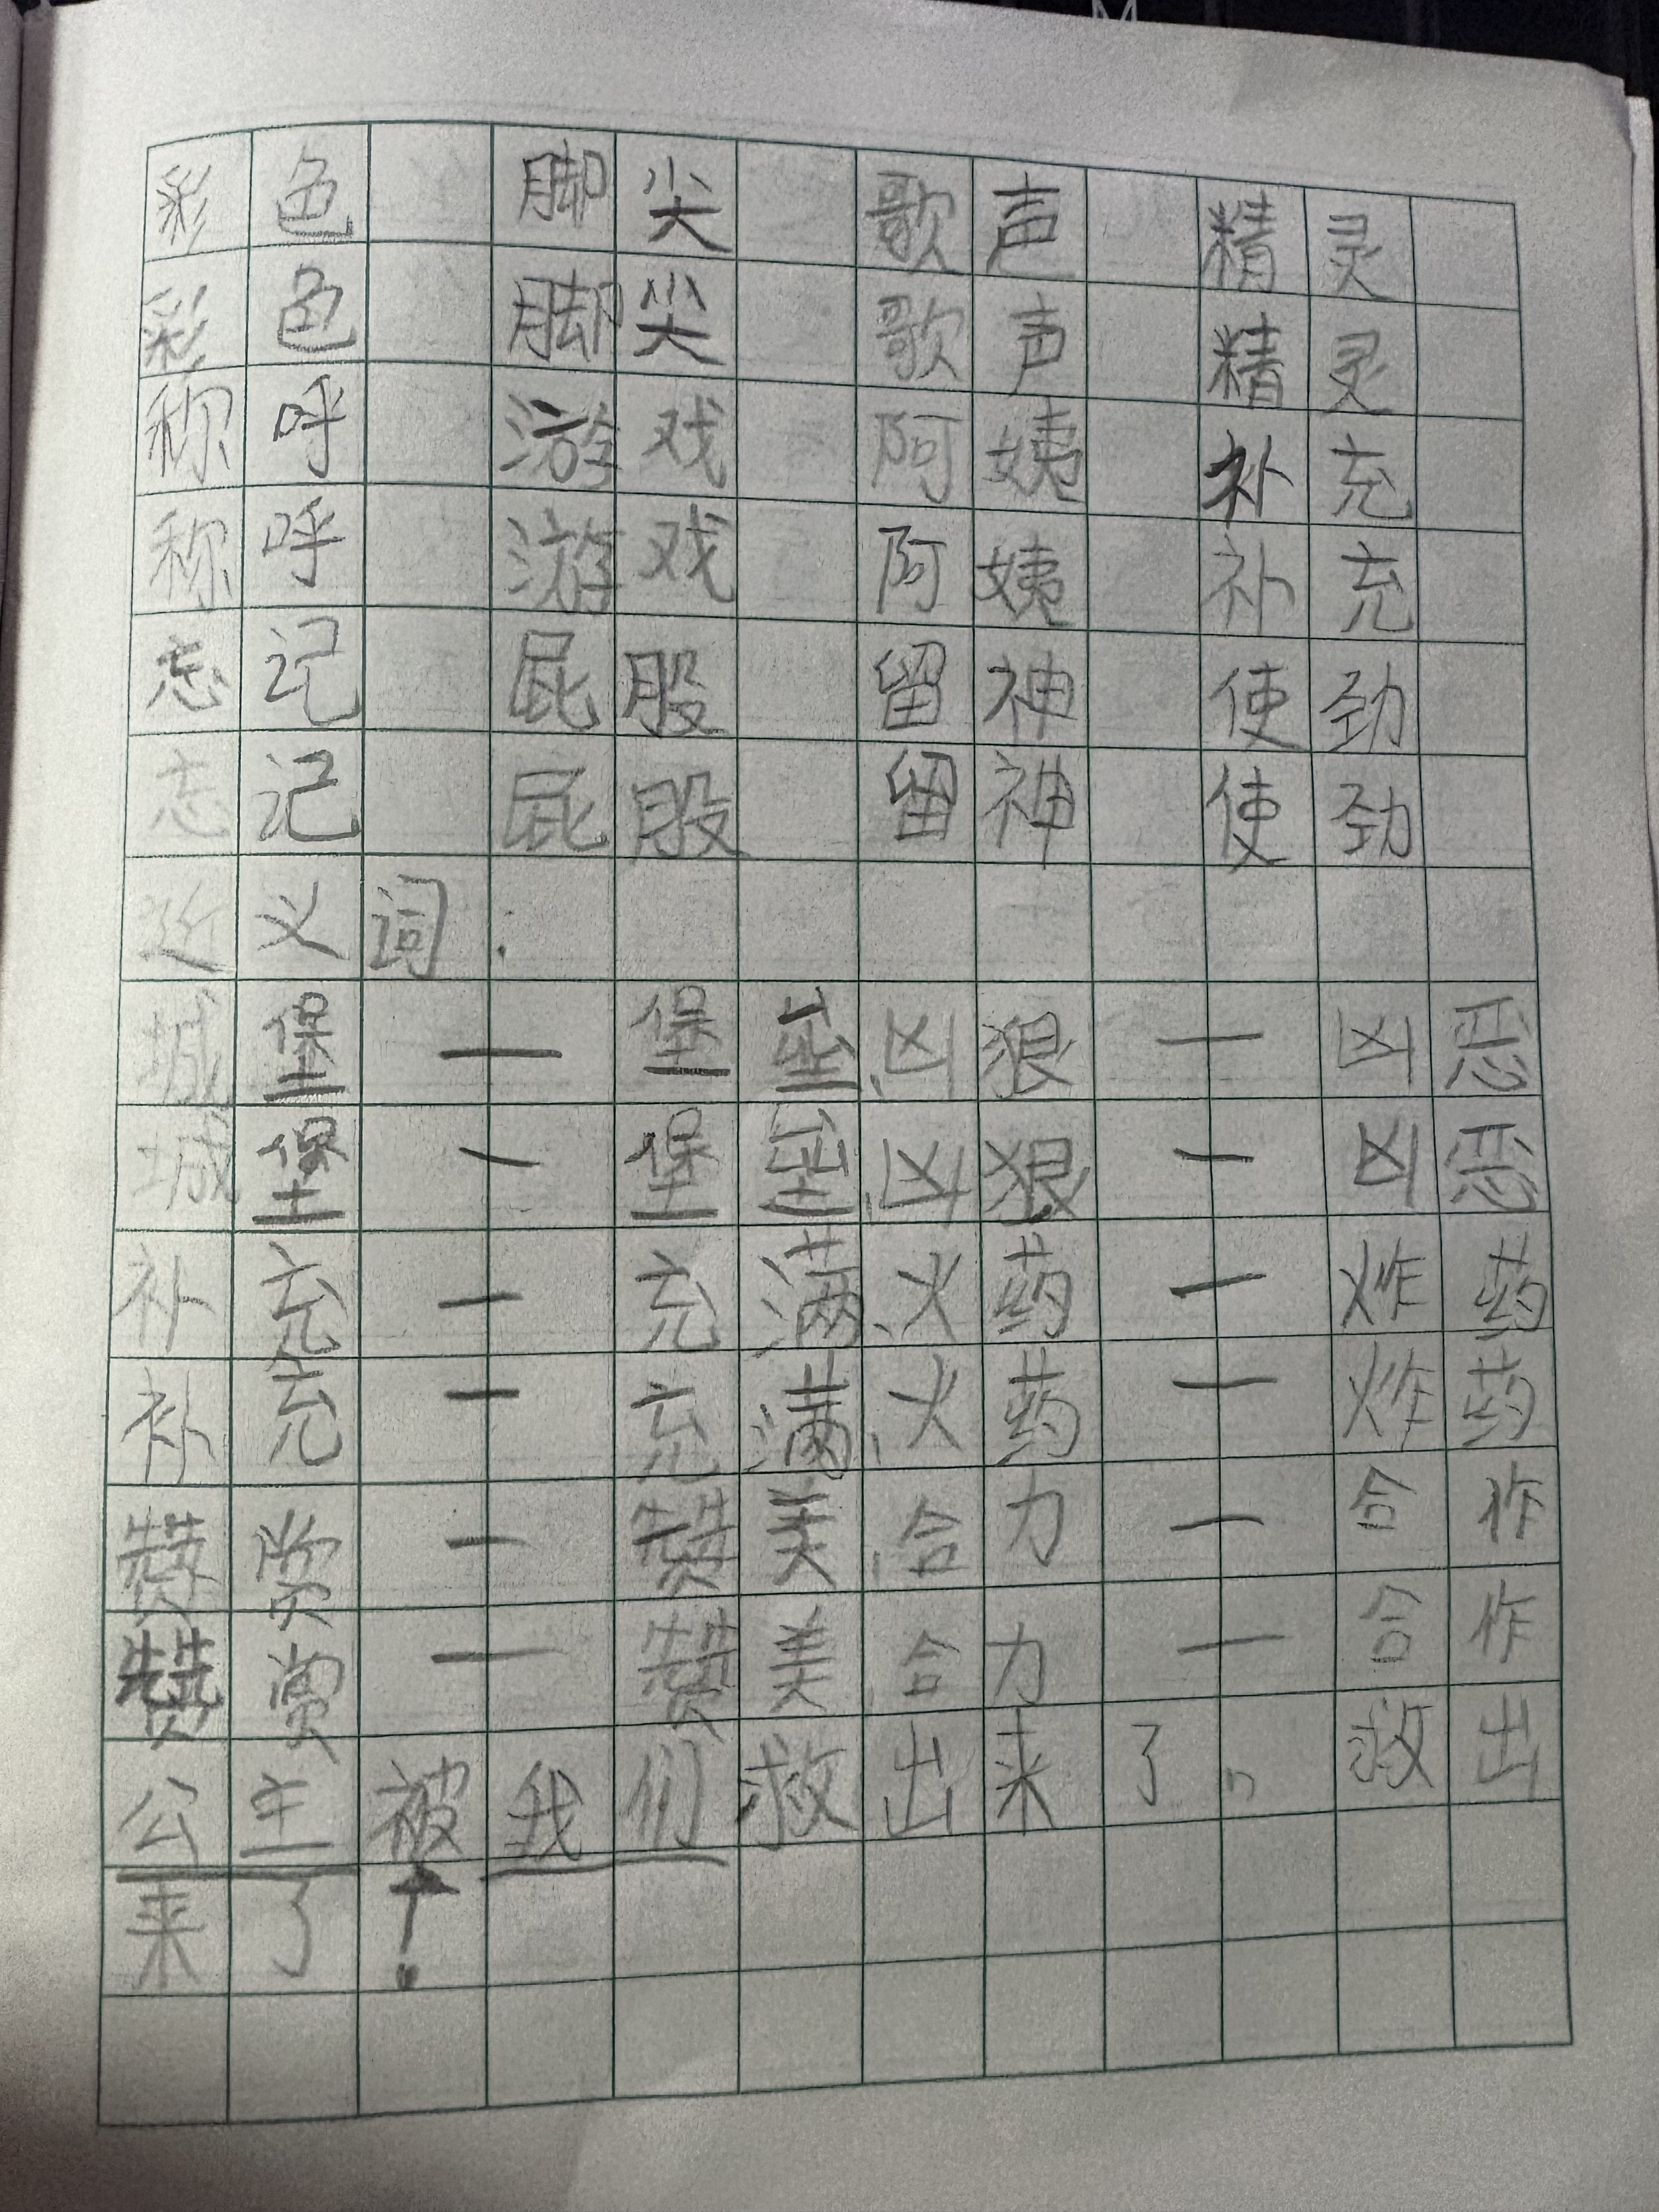 彩色 脚尖 歌声 精灵
彩色 脚尖 歌声 精灵
称呼 游戏 阿姨 补充
称呼 游戏 阿姨 补充
忘记 屁股 留神 使劲
忘记 屁股 留神 使劲
近义词：
城堡—堡垒、凶狠—凶恶
城堡—堡垒、凶狠—凶恶
补充—充满、火药—炸药
补充—充满、火药—炸药
赞赏—赞美、合力—合作
赞赏—赞美、合力—合作
公主被我们救出来了。救出
来了！